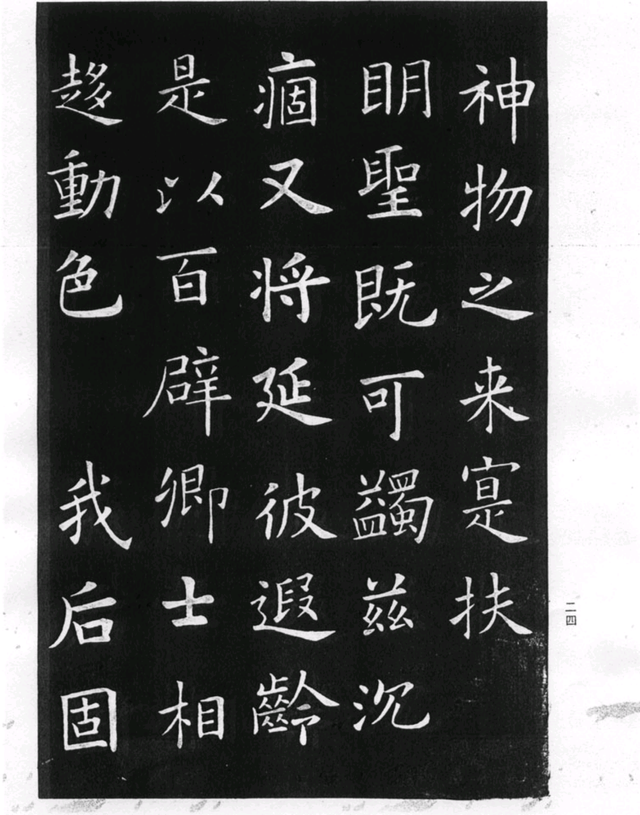 神物之来寔扶
明聖既可蠲兹沉
痼又将延彼遐齡
是以百辟卿士相
趍動色 我后固
二四